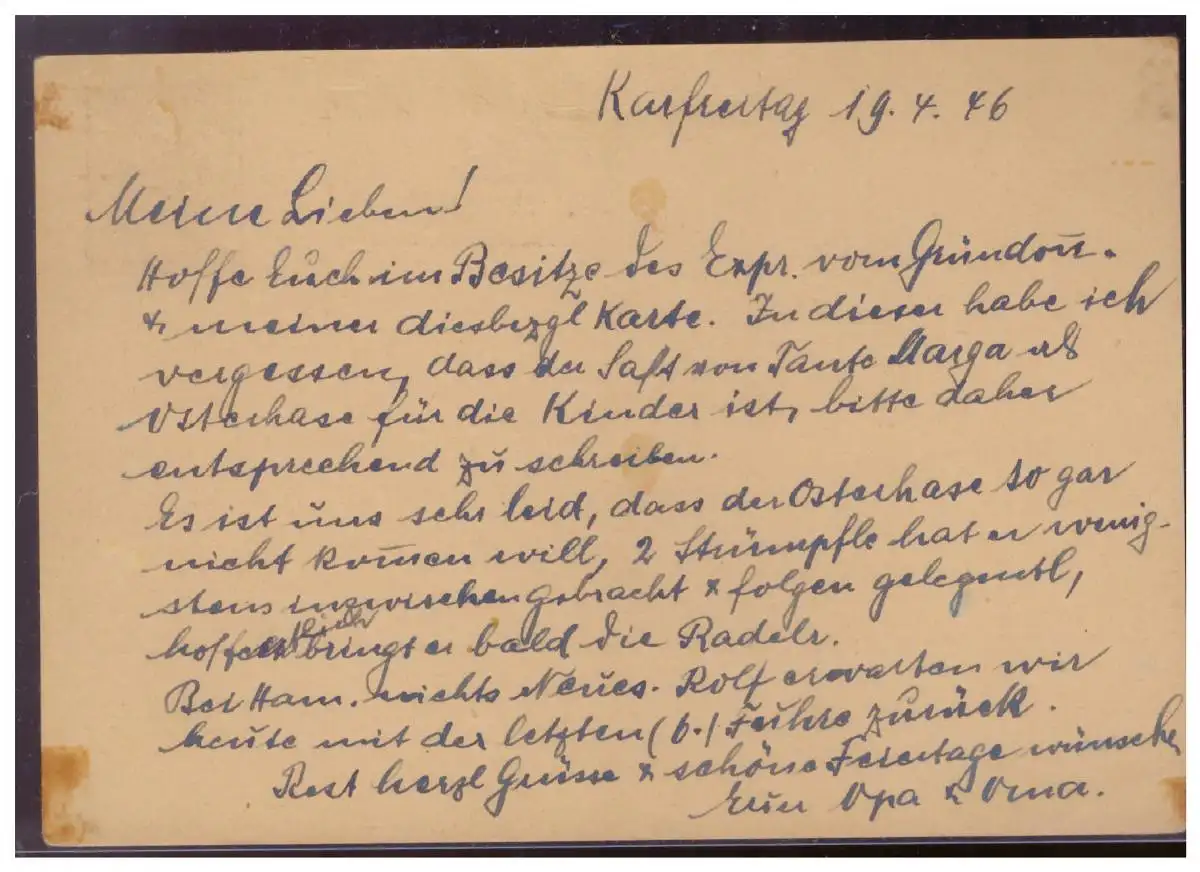 Karfreitag 19. 4. 46
Meine Lieben!
Hoffe Euch im Besitze des Expr. vom Gründon.
& meiner diesbezgl Karte. In dieser habe ich
vergessen, dass der Saft von Tante Marga als
Osterhase für die Kinder ist, bitte daher
entsprechend zu schreiben.
Es ist uns sehr leid, dass der Osterhase so gar
nicht kom̄en will, 2 Strümpfle hat er wenig-
stens inzwischen gebracht & folgen gelegentl,
hoffentlich bringt er bald die Radelr.
Bei Ham. nichts Neues. Rolf erwarten wir
heute mit der letzten (6.) Fuhre zurück.
Rest herzl Grüsse & schöne Feiertage wünschen
Euer Opa & Oma.